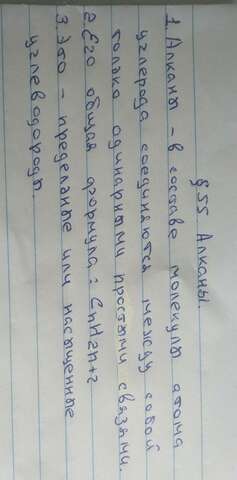 §55 Алканы.
1. Алканы - в составе молекулы атома
углерода соединяются между собой
только одинарными простыми связями.
2. Его общая формула: CnH2n+2
3. Это - предельные или насыщенные
углеводороды.